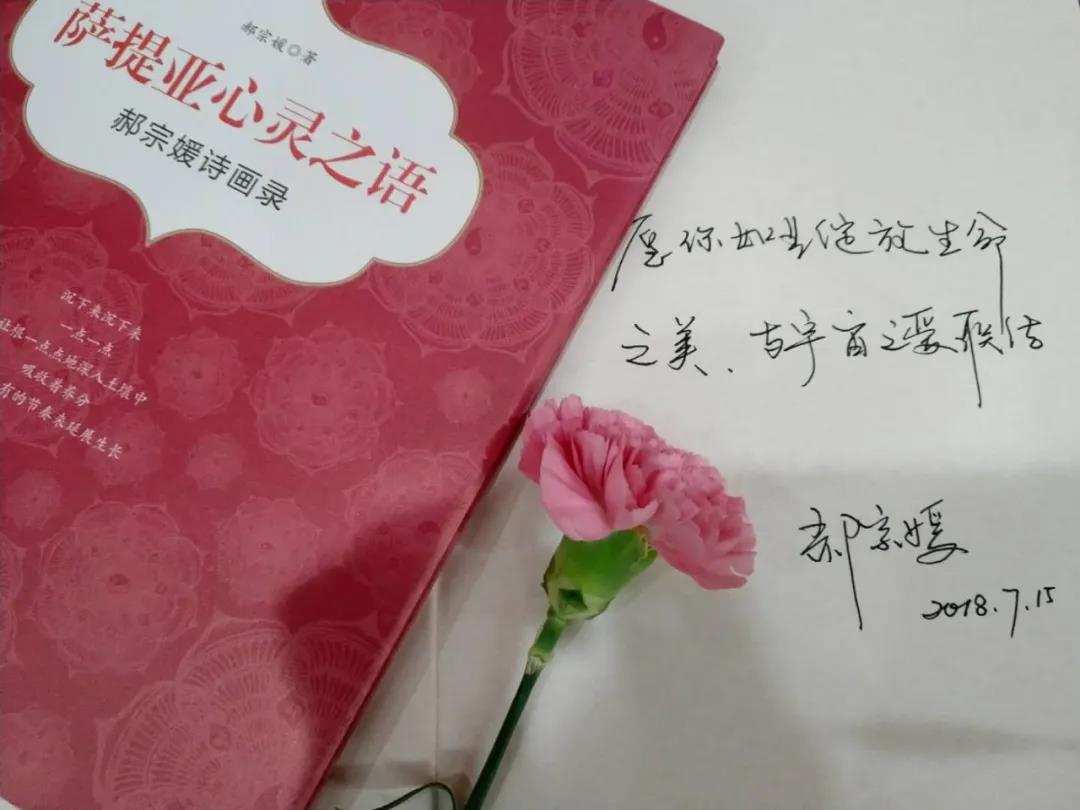 郝宗媛◎著
萨提亚心灵之语
郝宗媛诗画录
沉下来沉下来
一点一点
让根一点点地深入土壤中
吸收着养分
有的节奏来延展生长
愿你如此绽放生命
之美、与宇宙之爱联结
郝宗媛
2018.7.15